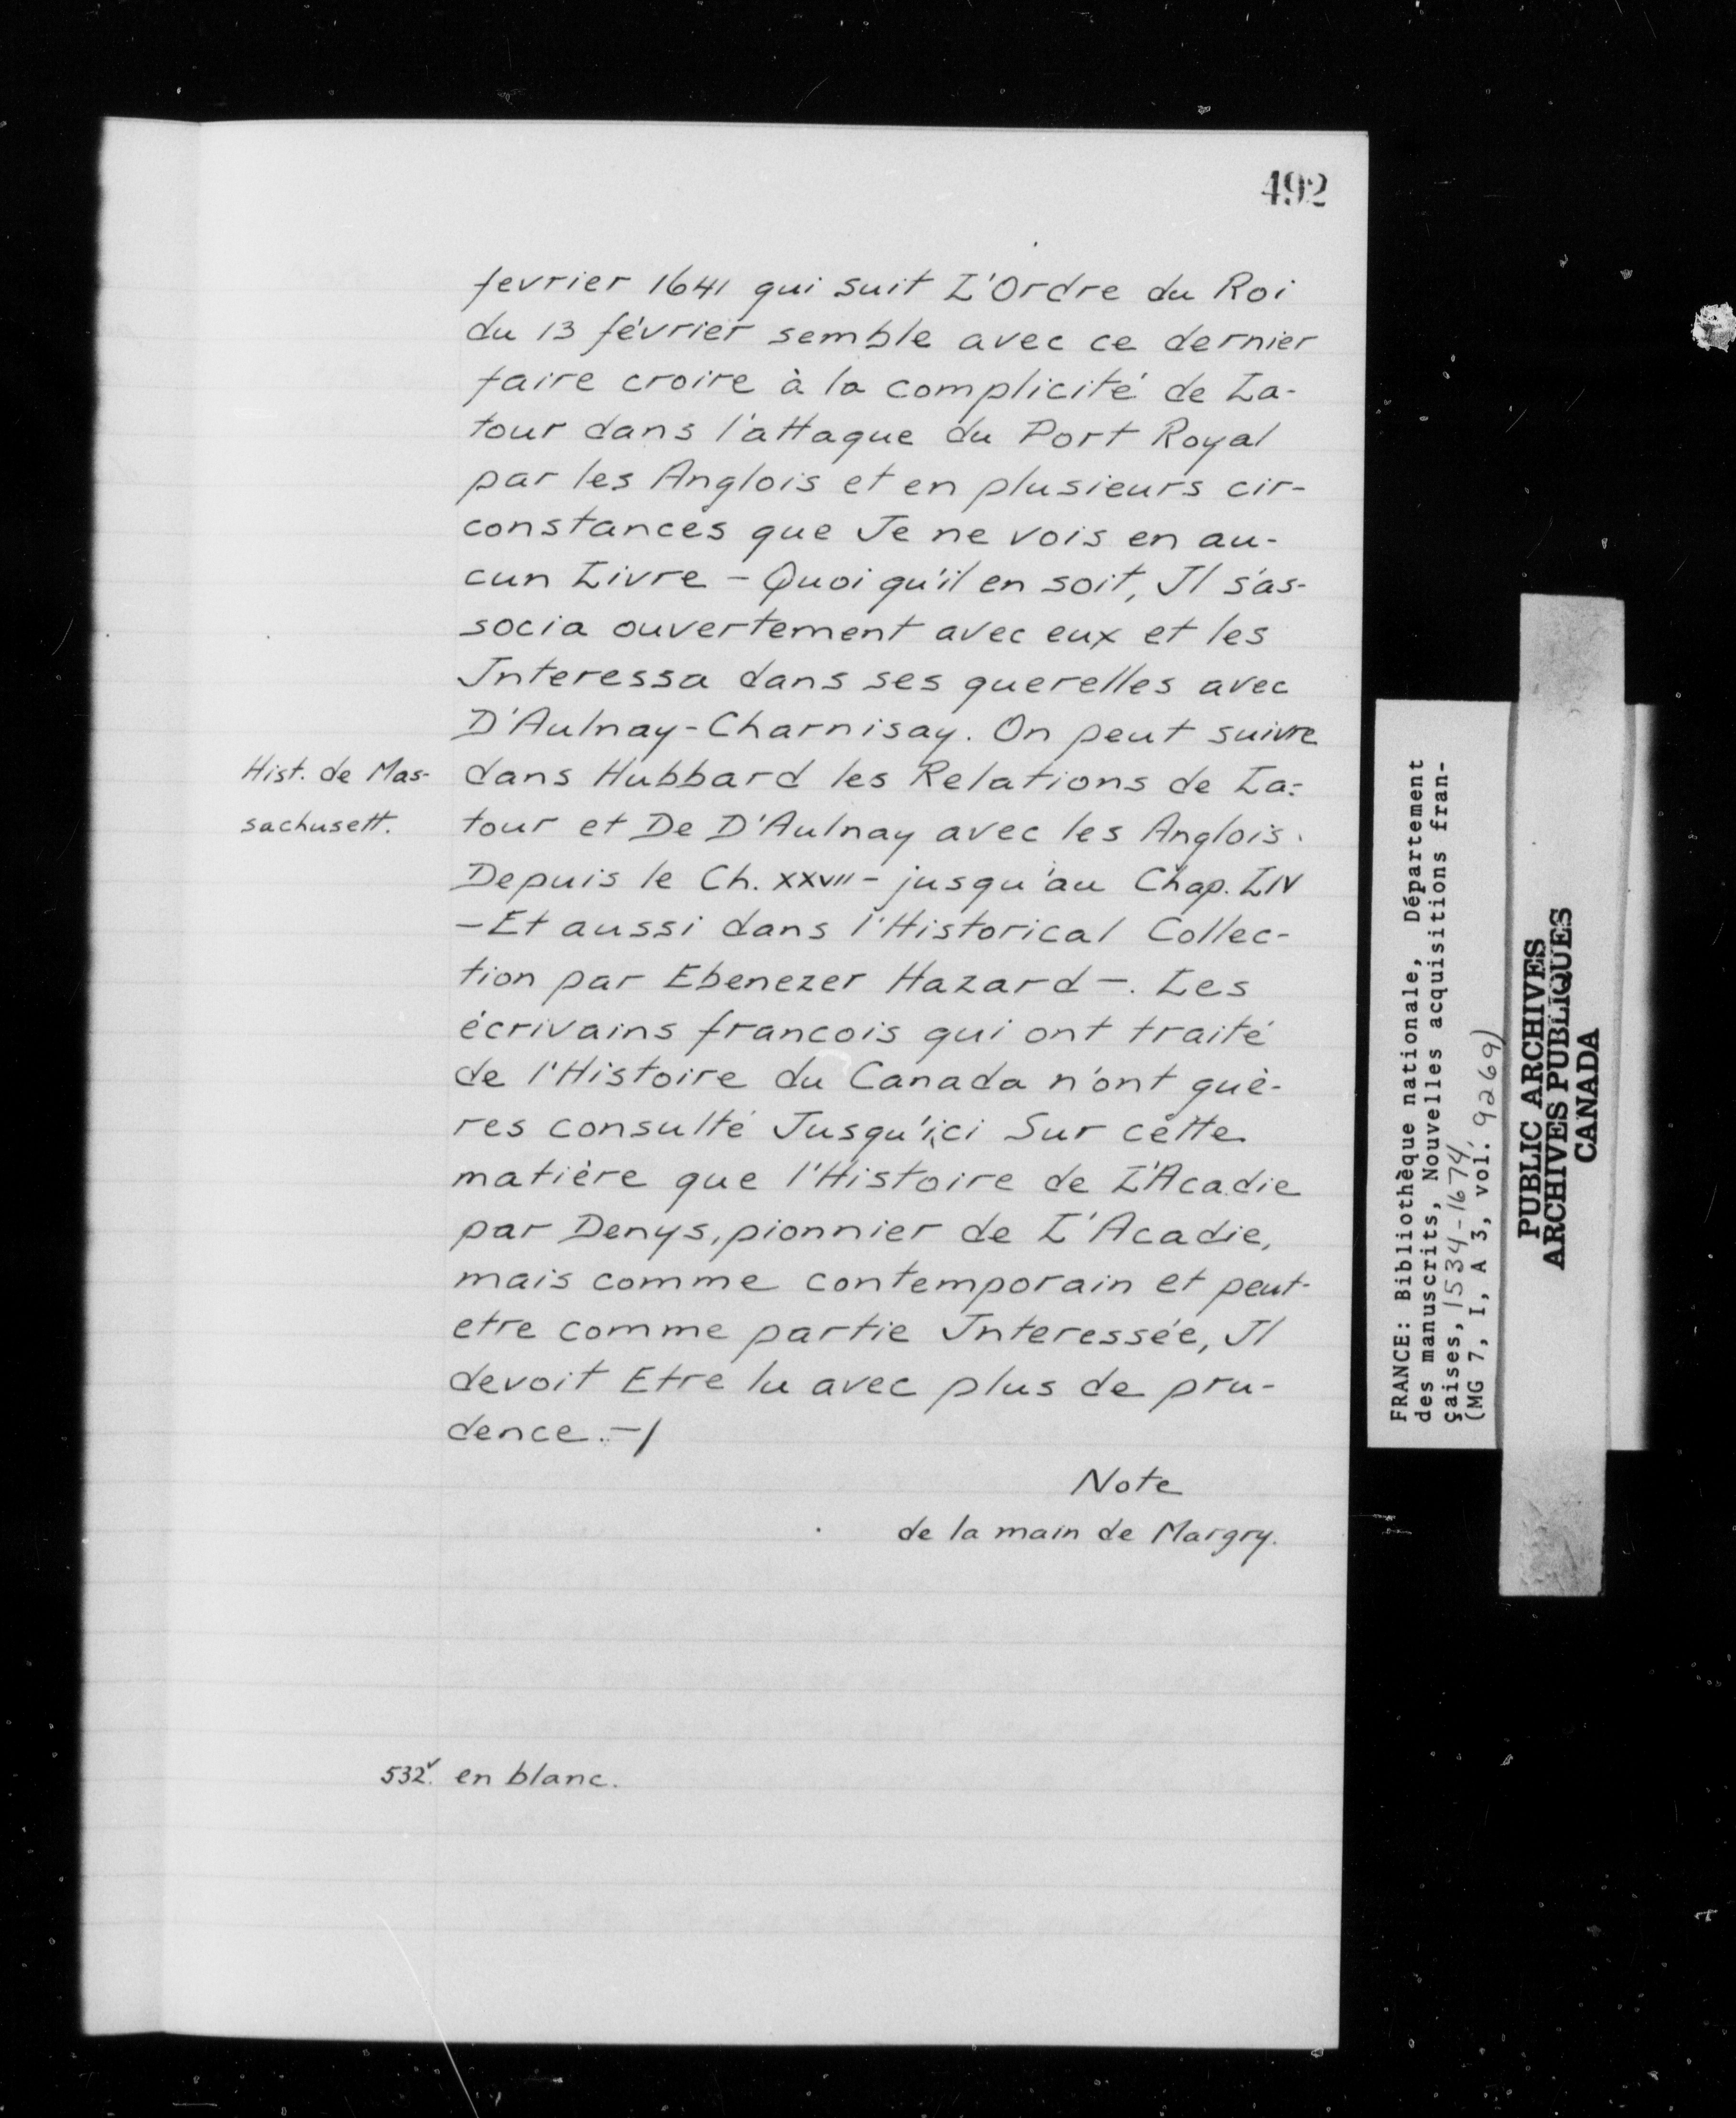 492
fevrier 1641 qui suit L'Ordre du Roi
du 13 février semble avec ce dernier
faire croire à la complicité de La-
tour dans l'attaque du Port Royal
par les Anglois et en plusieurs cir-
constances que Je ne vois en au-
cun Livre - Quoi qu'il en soit, Il s'as-
socia ouvertement avec eux et les
Interessa dans ses querelles avec
D'Aulnay-Charnisay. On peut suivre
Hist. de Mas-
sachusett.
dans Hubbard les Relations de La-
tour et De D'Aulnay avec les Anglois.
Depuis le Ch. XXVII - jusqu'au Chap. LIV
- Et aussi dans l'Historical Collec-
tion par Ebenezer Hazard -. Les
écrivains francois qui ont traité
de l'Histoire du Canada n'ont guè-
res consulté Jusqu'ici Sur cette
matière que l'Histoire de L'Acadie
par Denys, pionnier de L'Acadie,
mais comme contemporain et peut-
etre comme partie Interessée, Il
devoit Etre lu avec plus de pru-
dence. -/
Note
de la main de Margry.
532v. en blanc.
FRANCE: Bibliothèque nationale, Département
des manuscrits, Nouvelles acquisitions fran-
çaises, 1534-1674
(MG 7, I, A 3, vol. 9269)
PUBLIC ARCHIVES
ARCHIVES PUBLIQUES
CANADA